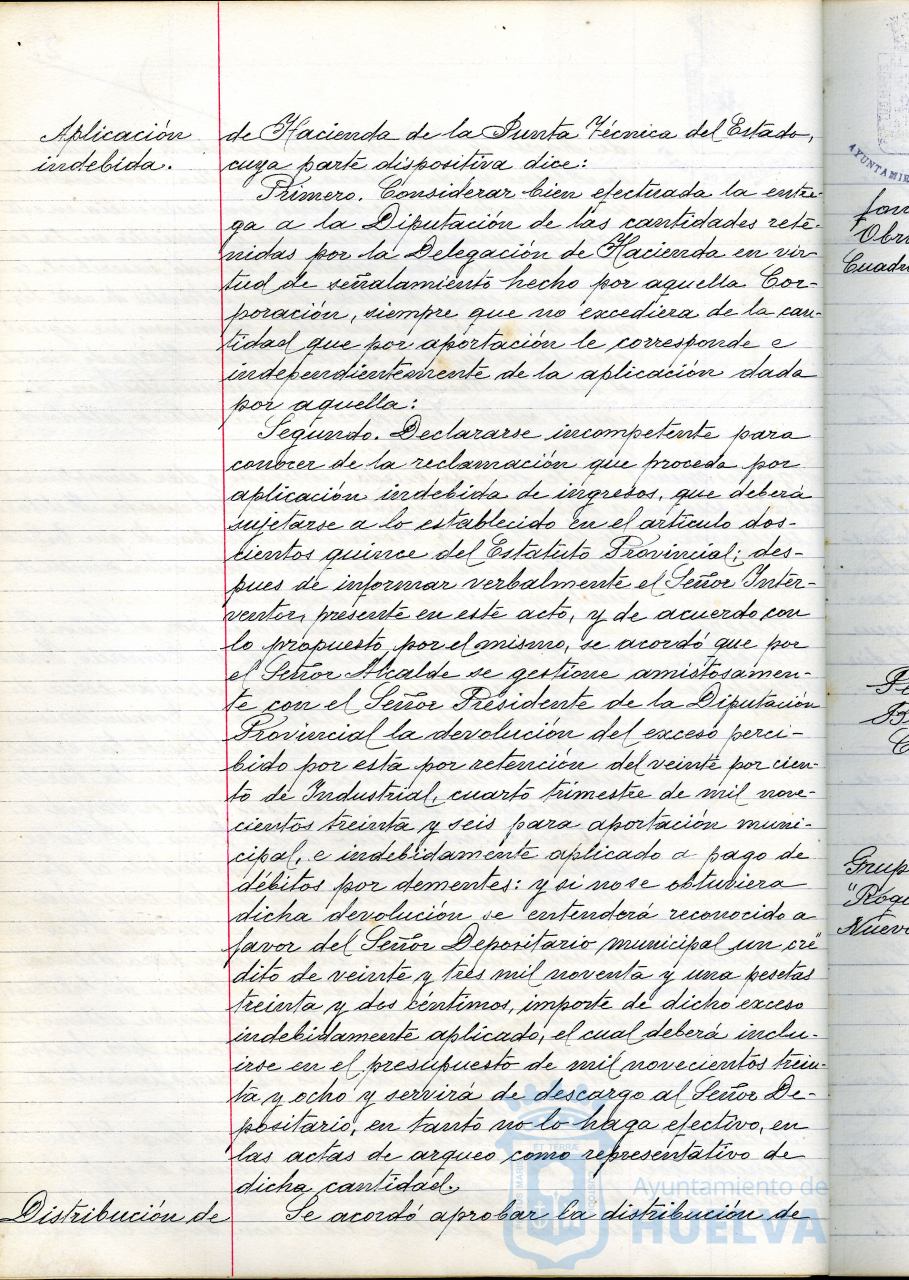 Aplicación
indebida.
de Hacienda de la Junta Técnica del Estado,
cuya parte dispositiva dice:
Primero. Considerar bien efectuada la entre-
ga a la Diputación de las cantidades rete-
nidas por la Delegación de Hacienda en vir-
tud de señalamiento hecho por aquella Cor-
poración, siempre que no excediera de la can-
tidad que por aportación le corresponde e
independientemente de la aplicación dada
por aquella:
Segundo. Declararse incompetente para
conocer de la reclamación que proceda por
aplicación indebida de ingresos, que deberá
sujetarse a lo establecido en el artículo dos-
cientos quince del Estatuto Provincial; des-
pues de informar verbalmente el Señor Inter-
ventor, presente en este acto, y de acuerdo con
lo propuesto por el mismo, se acordó que por
el Señor Alcalde se gestione amistosamen-
te con el Señor Presidente de la Diputación
Provincial la devolución del exceso perci-
bido por esta por retención del veinte por cien-
to de Industrial, cuarto trimestre de mil nove-
cientos treinta y seis para aportación muni-
cipal, e indebidamente aplicado a pago de
débitos por dementes: y si no se obtuviera
dicha devolución se entenderá reconocido a
favor del Señor Depositario municipal un cré-
dito de veinte y tres mil noventa y una pesetas
treinta y dos céntimos, importe de dicho exceso
indebidamente aplicado, el cual deberá inclu-
irse en el presupuesto de mil novecientos trein-
ta y ocho y servirá de descargo al Señor De-
positario, en tanto no lo haga efectivo, en
las actas de arqueo como representativo de
dicha cantidad.
Distribución de
Se acordó aprobar la distribución de
Ayuntamiento de
HUELVA
AYUNTAMIE
Obr
Cuadr
Grup
"Roqu
Nuevo